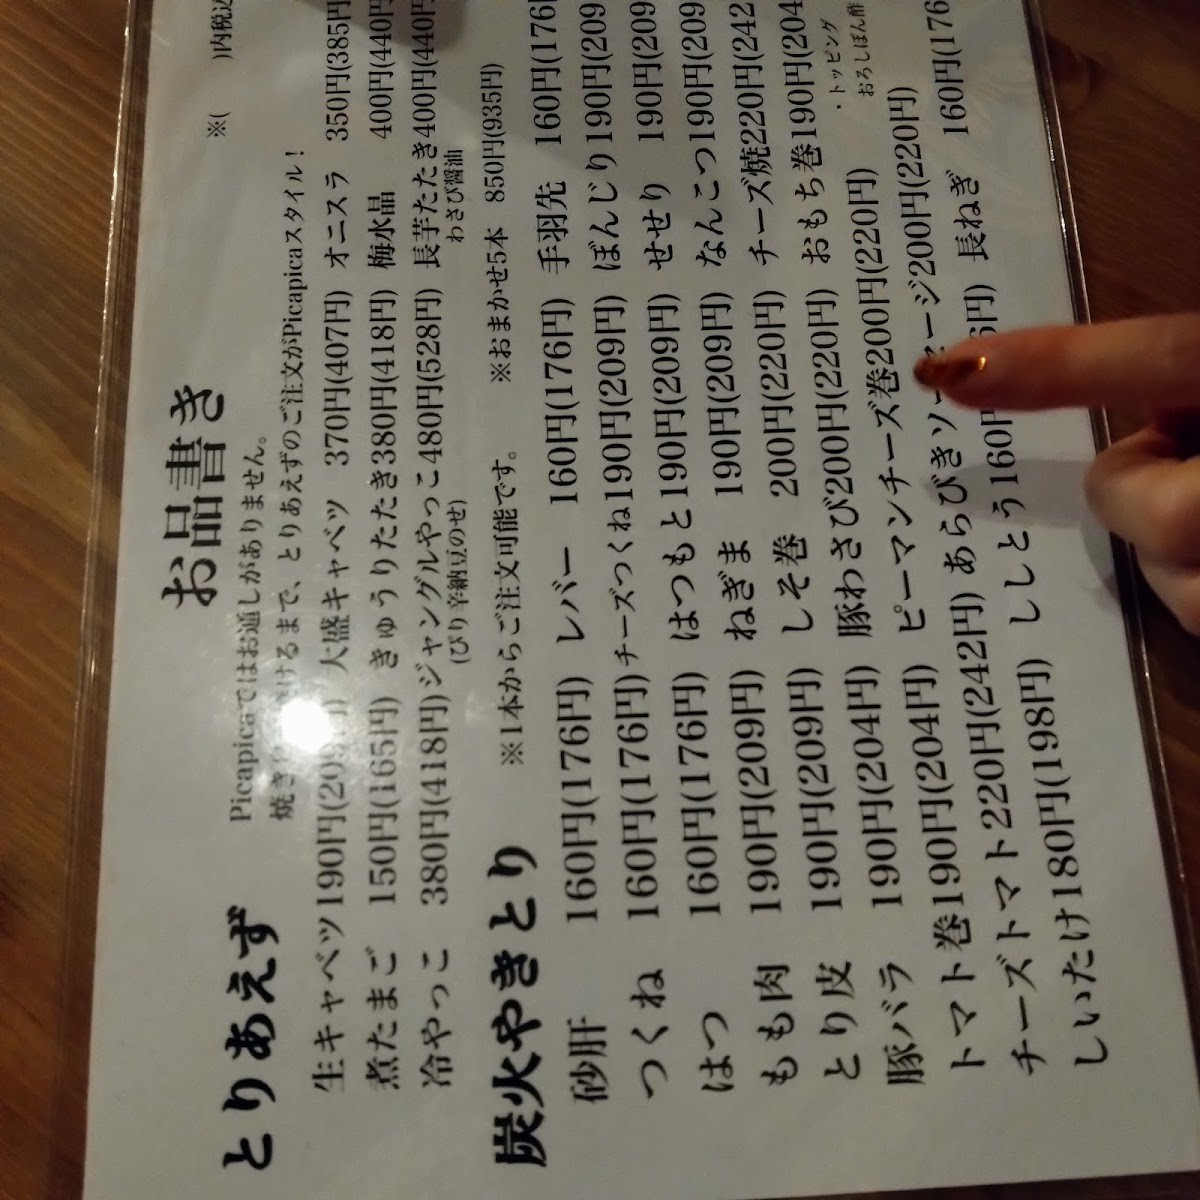 お品書き
※( )内税込
Picapicaではお通しがありません。
焼き けるまで、とりあえずのご注文がPicapicaスタイル！
とりあえず
生キャベツ190円(209円) 大盛キャベツ 370円(407円) オニスラ 350円(385円
煮たまご 150円(165円) きゅうりたたき380円(418円) 梅水晶 400円(440円
冷やっこ 380円(418円) ジャングルやっこ480円(528円) 長芋たたき400円(440円
(ぴり辛納豆のせ) わさび醤油
炭火やきとり ※1本からご注文可能です。 ※おまかせ5本 850円(935円)
砂肝 160円(176円) レバー 160円(176円) 手羽先 160円(176
つくね 160円(176円) チーズつくね190円(209円) ぼんじり190円(209
はつ 160円(176円) はつもと190円(209円) せせり 190円(209
もも肉 190円(209円) ねぎま 190円(209円) なんこつ190円(209
とり皮 190円(209円) しそ巻 200円(220円) チーズ焼220円(242
豚バラ 190円(204円) 豚わさび200円(220円) おもち巻190円(204
トマト巻190円(204円) ピーマンチーズ巻200円(220円) ・トッピング
おろしぽん酢
チーズトマト220円(242円) あらびきソーセージ200円(220円)
しいたけ180円(198円) ししとう160円 6円) 長ねぎ 160円(176